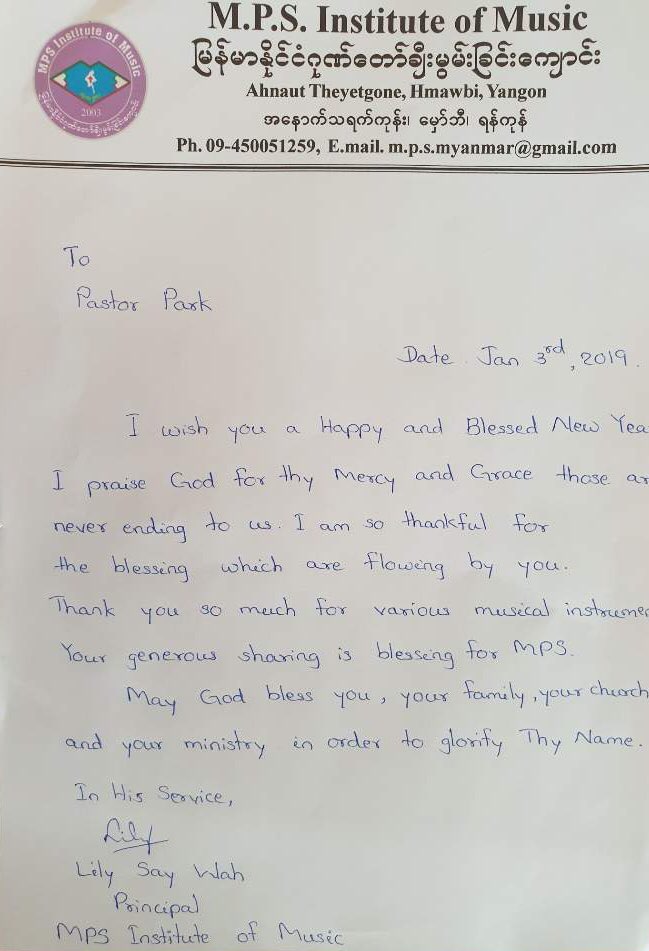 M.P.S. Institute of Music
မြန်မာနိုင်ငံဂုဏ်တော်ချီးမွမ်းခြင်းကျောင်း
Ahnaut Theyetgone, Hmawbi, Yangon
အနောက်သရက်ကုန်း၊ မှော်ဘီ၊ ရန်ကုန်
Ph. 09-450051259, E.mail. m.p.s.myanmar@gmail.com
MPS Institute of Music
2003
To
Pastor Park
Date. Jan 3rd, 2019.
I wish you a Happy and Blessed New Yea
I praise God for thy Mercy and Grace those ar
never ending to us. I am so thankful for
the blessing which are flowing by you.
Thank you so much for various musical instrumen
Your generous sharing is blessing for MPS.
May God bless you, your family, your church
and your ministry in order to glorify Thy Name.
In His Service,
Lily
Lily Say Wah
Principal
MPS Institute of Music